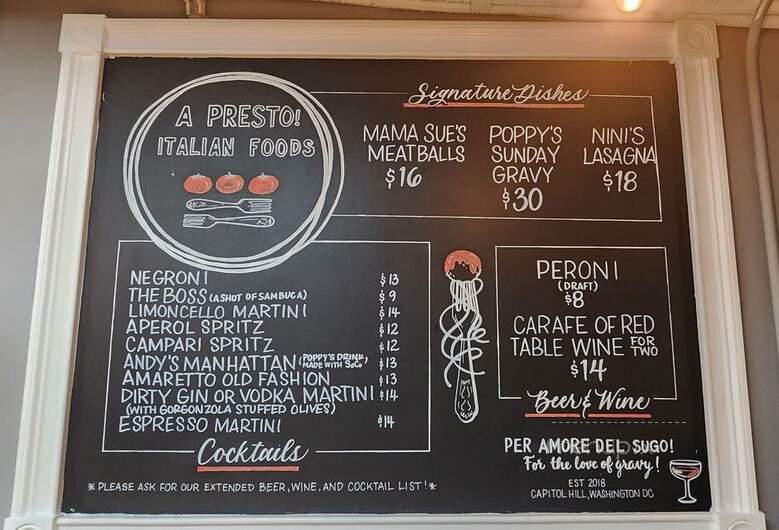 A PRESTO!
ITALIAN FOODS
Signature Dishes
MAMA SUE'S
MEATBALLS
$16
POPPY'S
SUNDAY
GRAVY
$30
NINI'S
LASAGNA
$18
NEGRONI $13
THE BOSS (A SHOT OF SAMBUCA) $9
LIMONCELLO MARTINI $14
APEROL SPRITZ $12
CAMPARI SPRITZ $12
ANDY'S MANHATTAN (POPPY'S DRINK, MADE WITH SoCo) $13
AMARETTO OLD FASHION $13
DIRTY GIN OR VODKA MARTINI $14
(WITH GORGONZOLA STUFFED OLIVES)
ESPRESSO MARTINI $14
Cocktails
* PLEASE ASK FOR OUR EXTENDED BEER, WINE, AND COCKTAIL LIST! *
PERONI
(DRAFT)
$8
CARAFE OF RED
TABLE WINE FOR TWO
$14
Beer & Wine
PER AMORE DEL SUGO!
For the love of gravy!
EST 2018
CAPITOL HILL, WASHINGTON DC